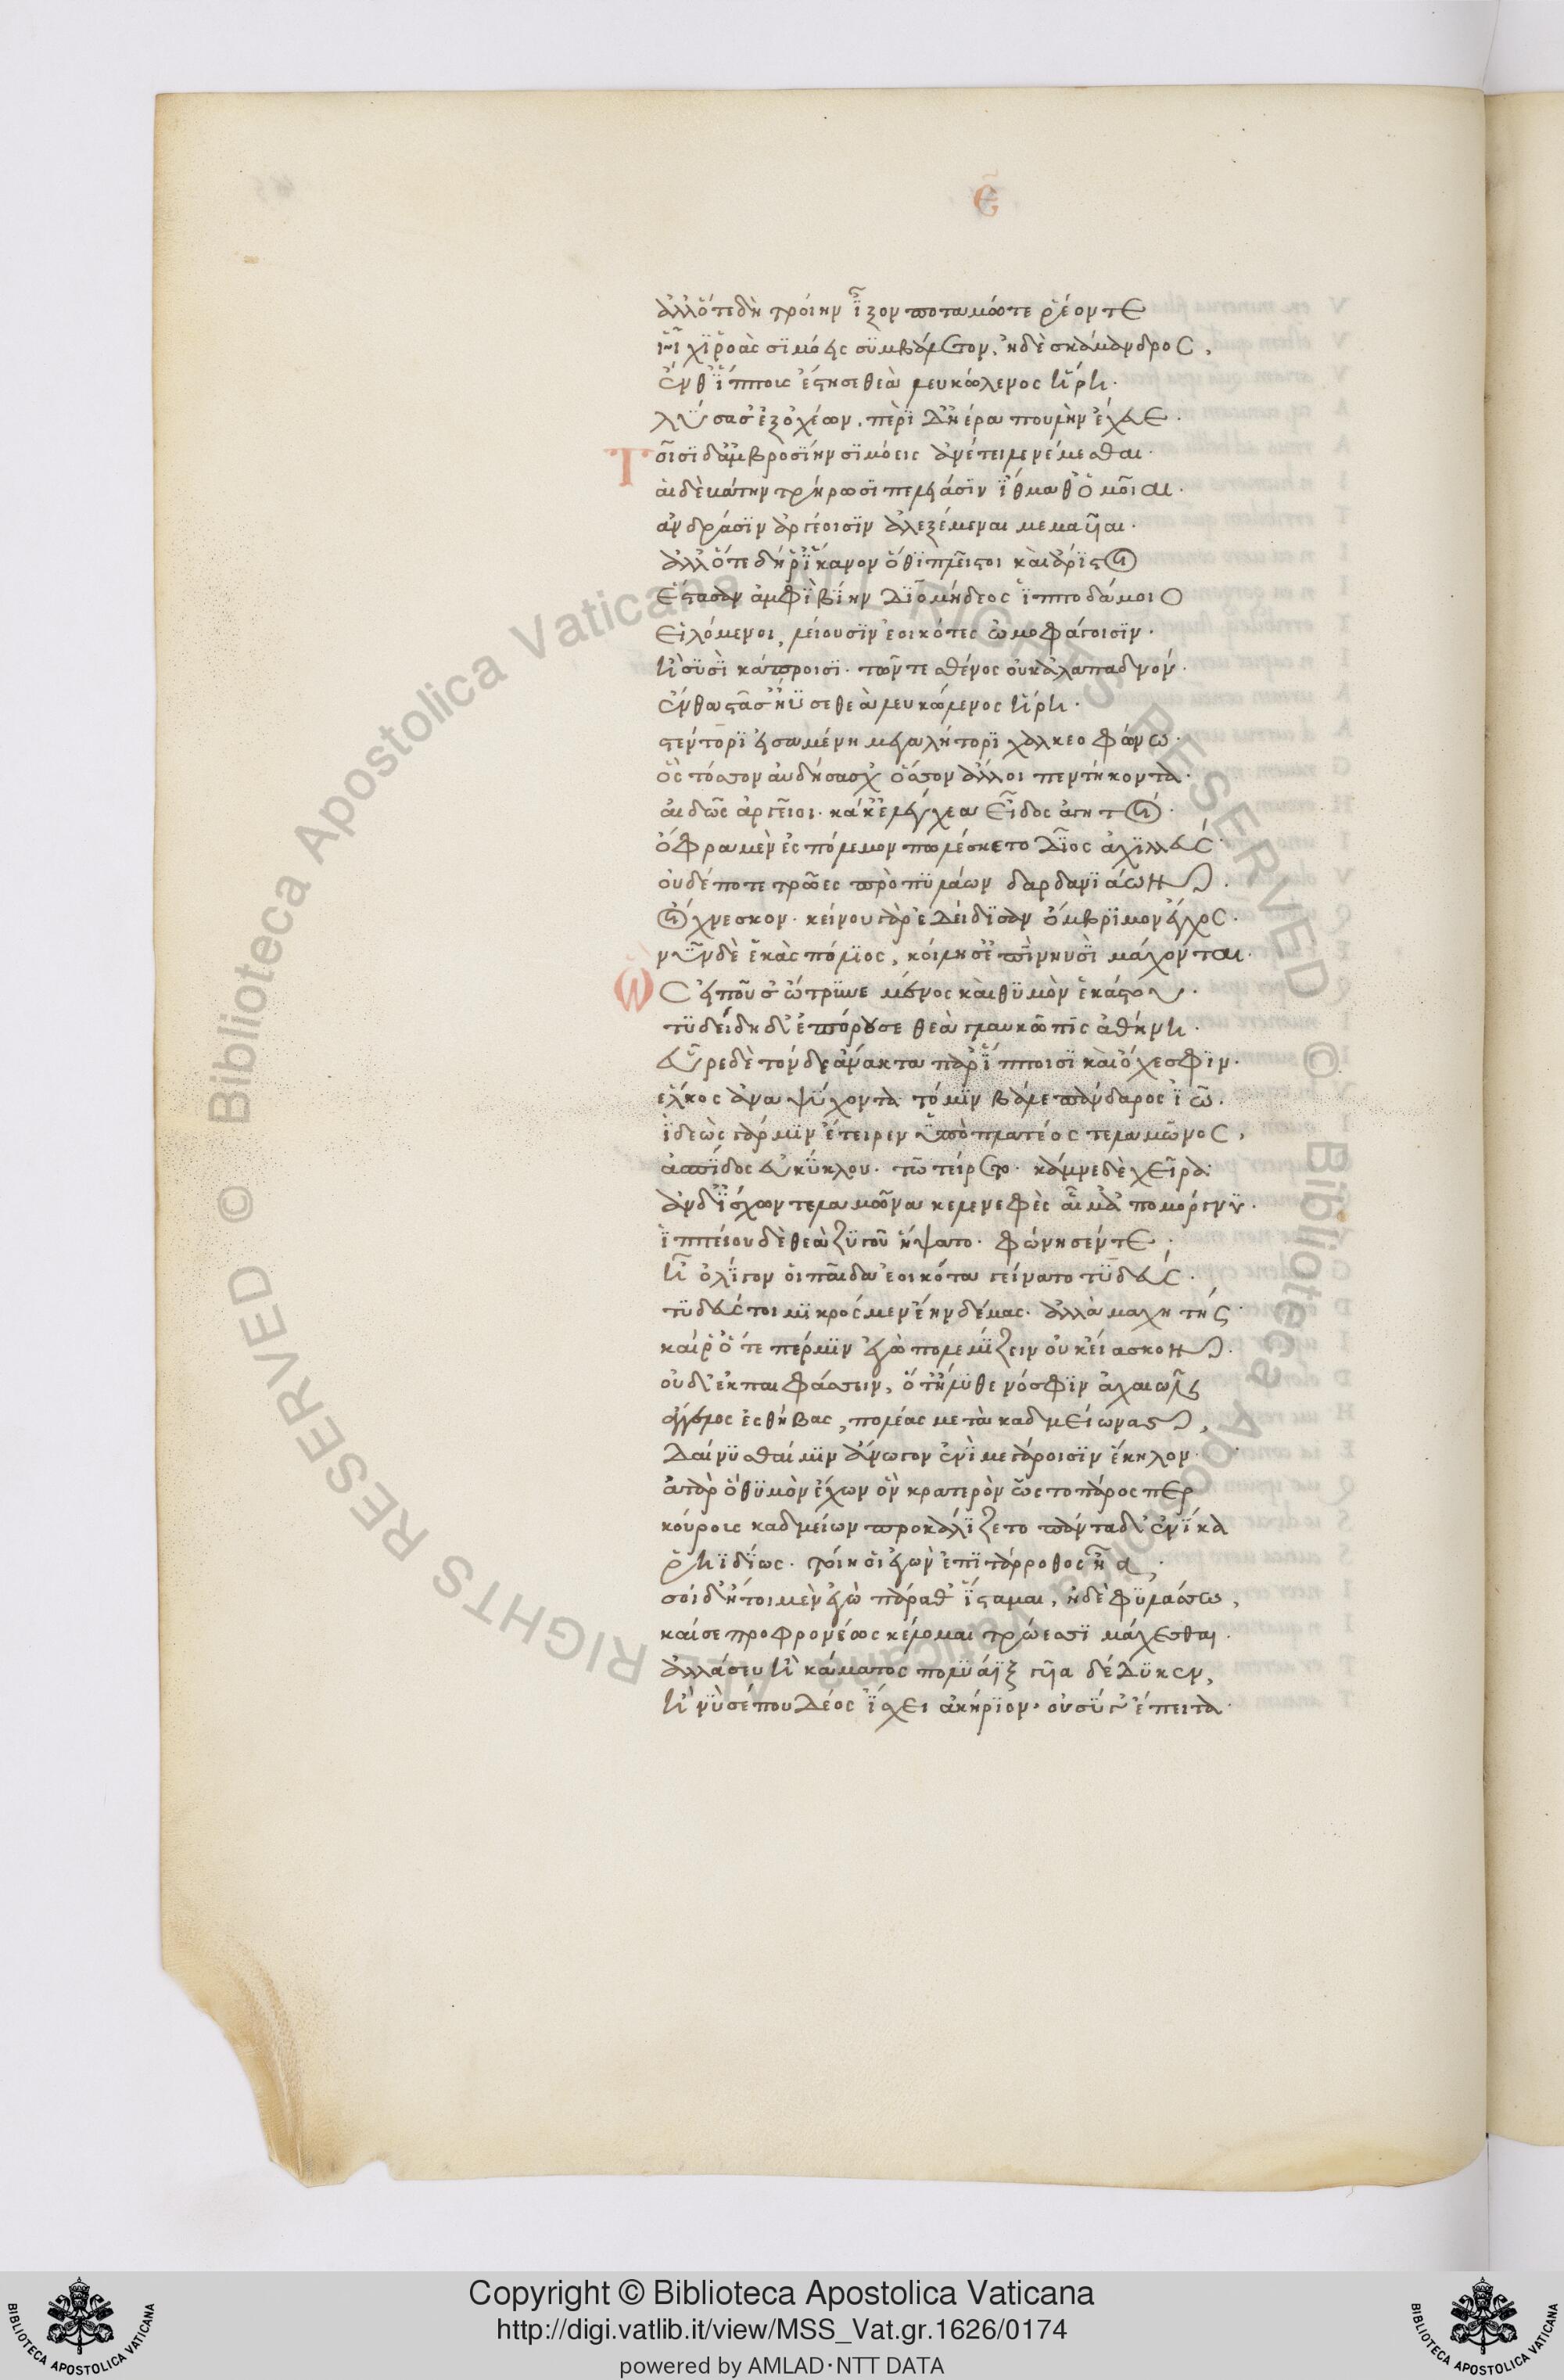 ε̄
ἀλλ' ὅτε δὴ τροίην ἷξον ποταμώ τε ῥέοντε
ἧχι ῥοὰς σιμόεις συμβάλετον, ἠδὲ σκάμανδρος,
ἔνθ' ἵππους ἔστησε θεὰ λευκώλενος ἥρη.
λύσασ' ἐξ ὀχέων. περὶ δ' ἠέρα πουλὺν ἔχευε.
Τοῖσι δ' ἀμβροσίην σιμόεις ἀνέτειλε νέμεσθαι.
αἱ δὲ βάτην τρήρωσι πελειάσιν ἴθμαθ' ὁμοῖαι.
ἀνδράσιν ἀργείοισιν ἀλεξέμεναι μεμαυῖαι.
ἀλλ' ὅτε δή ῥ' ἵκανον ὅθι πλεῖστοι καὶ ἄριστοι
ἕστασαν ἀμφὶ βίην διομήδεος ἱπποδάμοιο
εἰλόμενοι, λείουσιν ἐοικότες ὠμοφάγοισιν.
ἢ συσὶ κάπροισι. τῶν τε σθένος οὐκ ἀλαπαδνόν.
ἔνθα στᾶσ' ἤϋσε θεὰ λευκώλενος ἥρη.
στέντορι εἰσαμένη μεγαλήτορι χαλκεοφώνω.
ὃς τόσσον αὐδήσασχ' ὅσον ἄλλοι πεντήκοντα.
αἰδῶς ἀργεῖοι. κάκ' ἐλέγχεα εἶδος ἀγητοί.
ὄφρα μὲν ἐς πόλεμον πωλέσκετο δῖος ἀχιλλεύς.
οὐδέποτε τρῶες πρὸ πυλάων δαρδανιάων
οἴχνεσκον. κείνου γὰρ ἐδείδισαν ὄμβριμον ἔγχος.
νῦν δὲ ἑκὰς πόλιος, κοίλησ' ἐπὶ νηυσὶ μάχονται.
Ὣς εἰποῦσ' ὤτρυνε μένος καὶ θυμὸν ἑκάστου.
τυδείδη δ' ἐπόρουσε θεὰ γλαυκῶπις ἀθήνη.
εὗρε δὲ τόνδε ἄνακτα παρ' ἵπποισι καὶ ὄχεσφιν.
ἕλκος ἀναψύχοντα τό μιν βάλε πάνδαρος ἰῶ.
ἱδρὼς γάρ μιν ἔτειρεν ὑπὸ πλατέος τελαμῶνος,
ἀσπίδος εὐκύκλου. τῶ τείρετο. κάμνε δὲ χεῖρα.
ἂν δ' ἴσχων τελαμῶνα κελενεφὲς αἷμ' ἀπομόργνυ.
ἱππείου δὲ θεὰ ζυγοῦ ἥψατο. φώνησέν τε.
ἦ ὀλίγον οἷ παῖδα ἐοικότα γείνατο τυδεύς.
τυδεύς τοι μικρὸς μὲν ἔην δέμας. ἀλλὰ μαχητής.
καί ῥ' ὅτε πέρ μιν ἐγὼ πολεμίζειν οὐκ εἴασκον.
οὐδ' ἐκπαιφάσσειν, ὅτ' ἤλυθε νόσφιν ἀχαιῶν
ἄγγελος ἐς θήβας, πολέας μετὰ καδμείωνας,
δαίνυσθαί μιν ἄνωγον ἐνὶ μεγάροισιν ἕκηλον.
αὐτὰρ ὁ θυμὸν ἔχων ὃν κρατερὸν ὡς τὸ πάρος περ
κούρους καδμείων προκαλίζετο πάντα δ' ἐνίκα
ῥηϊδίως. τοίη οἱ ἐγὼν ἐπιτάρροθος ἦα,
σοὶ δ' ἤτοι μὲν ἐγὼ παρά θ' ἵσταμαι, ἠδὲ φυλάσσω,
καί σε προφρονέως κέλομαι τρώεσσι μάχεσθαι.
ἀλλά σευ ἢ κάματος πολυάϊξ γυῖα δέδυκεν,
ἢ νύ σέ που δέος ἴσχει ἀκήριον. οὐ σύ γ' ἔπειτα.
Copyright © Biblioteca Apostolica Vaticana
http://digi.vatlib.it/view/MSS_Vat.gr.1626/0174
powered by AMLAD·NTT DATA